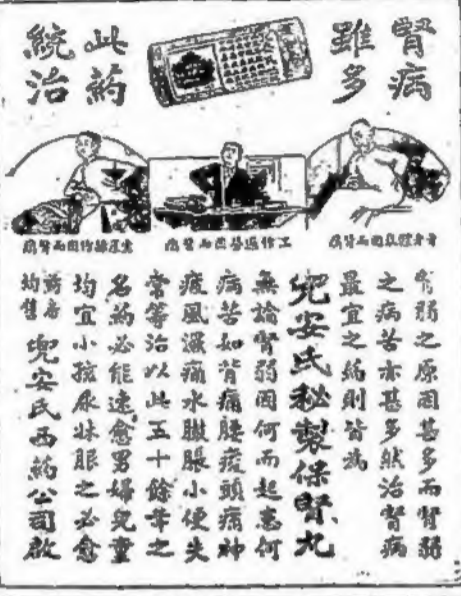 腎病
雖多
此葯
統治
因而腎病
工作過勞因而腎病
因而腎病
腎弱之原因甚多而腎弱
之病苦亦甚多然治腎病
最宜之葯則皆為
兜安氏秘製保腎丸
無論腎弱因何而起患何
病苦如背痛腰痠頭痛神
疲風濕痛水臌脹小便失
常等治以此五十餘年之
名葯必能速愈男婦兒童
均宜小孩尿牀服之必愈
均售 兜安氏西葯公司啟